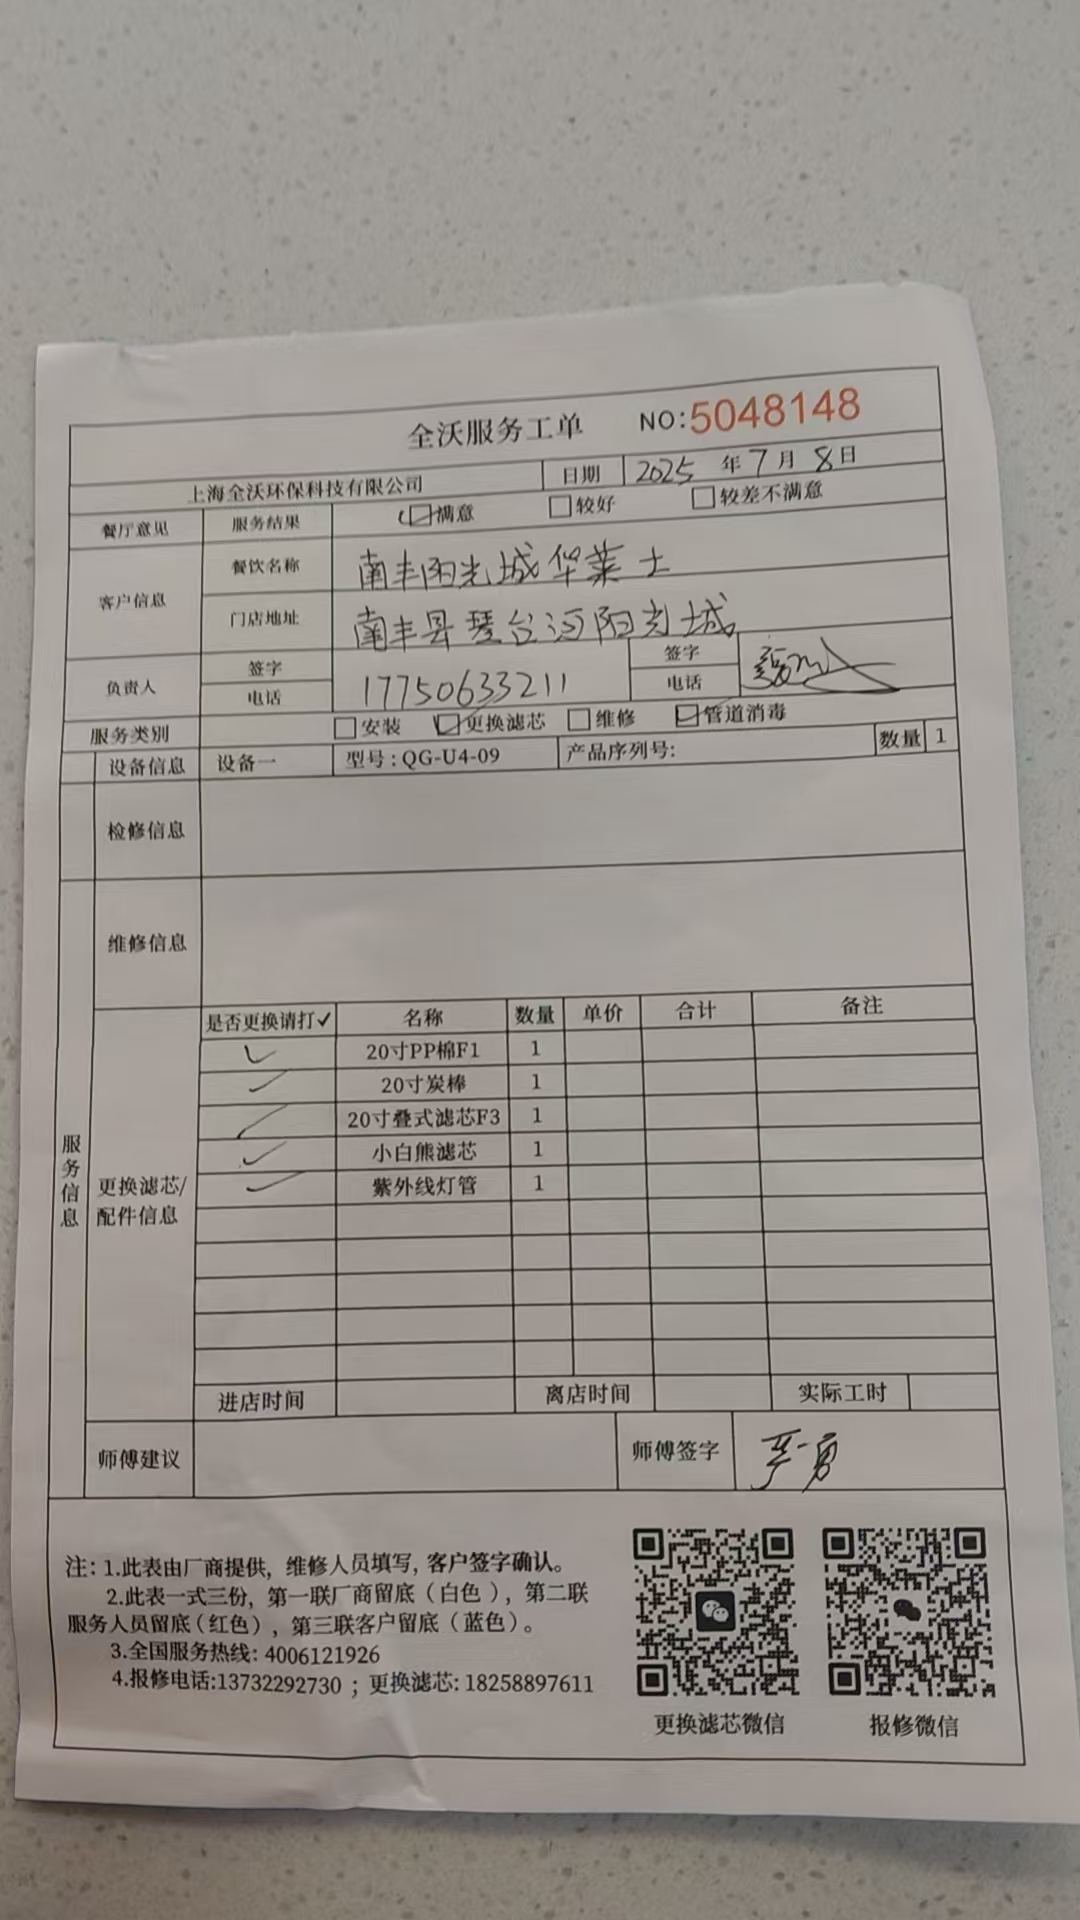 全沃服务工单 NO:5048148
上海全沃环保科技有限公司 日期 2025 年 7 月 8 日
餐厅意见 服务结果 满意 较好 较差不满意
客户信息 餐饮名称 南丰阳光城华莱士
门店地址 南丰县琴台河阳光城
负责人 签字 签字
电话 17750633211 电话
服务类别 安装 更换滤芯 维修 管道消毒
设备信息 设备一 型号:QG-U4-09 产品序列号: 数量 1
检修信息
维修信息
服务信息
更换滤芯/配件信息
是否更换请打✓ 名称 数量 单价 合计 备注
✓ 20寸PP棉F1 1
✓ 20寸炭棒 1
✓ 20寸叠式滤芯F3 1
✓ 小白熊滤芯 1
✓ 紫外线灯管 1
进店时间 离店时间 实际工时
师傅建议 师傅签字
注: 1.此表由厂商提供, 维修人员填写, 客户签字确认。
2.此表一式三份, 第一联厂商留底（白色）, 第二联
服务人员留底(红色), 第三联客户留底（蓝色）。
3.全国服务热线: 4006121926
4.报修电话:13732292730 ; 更换滤芯: 18258897611
更换滤芯微信 报修微信